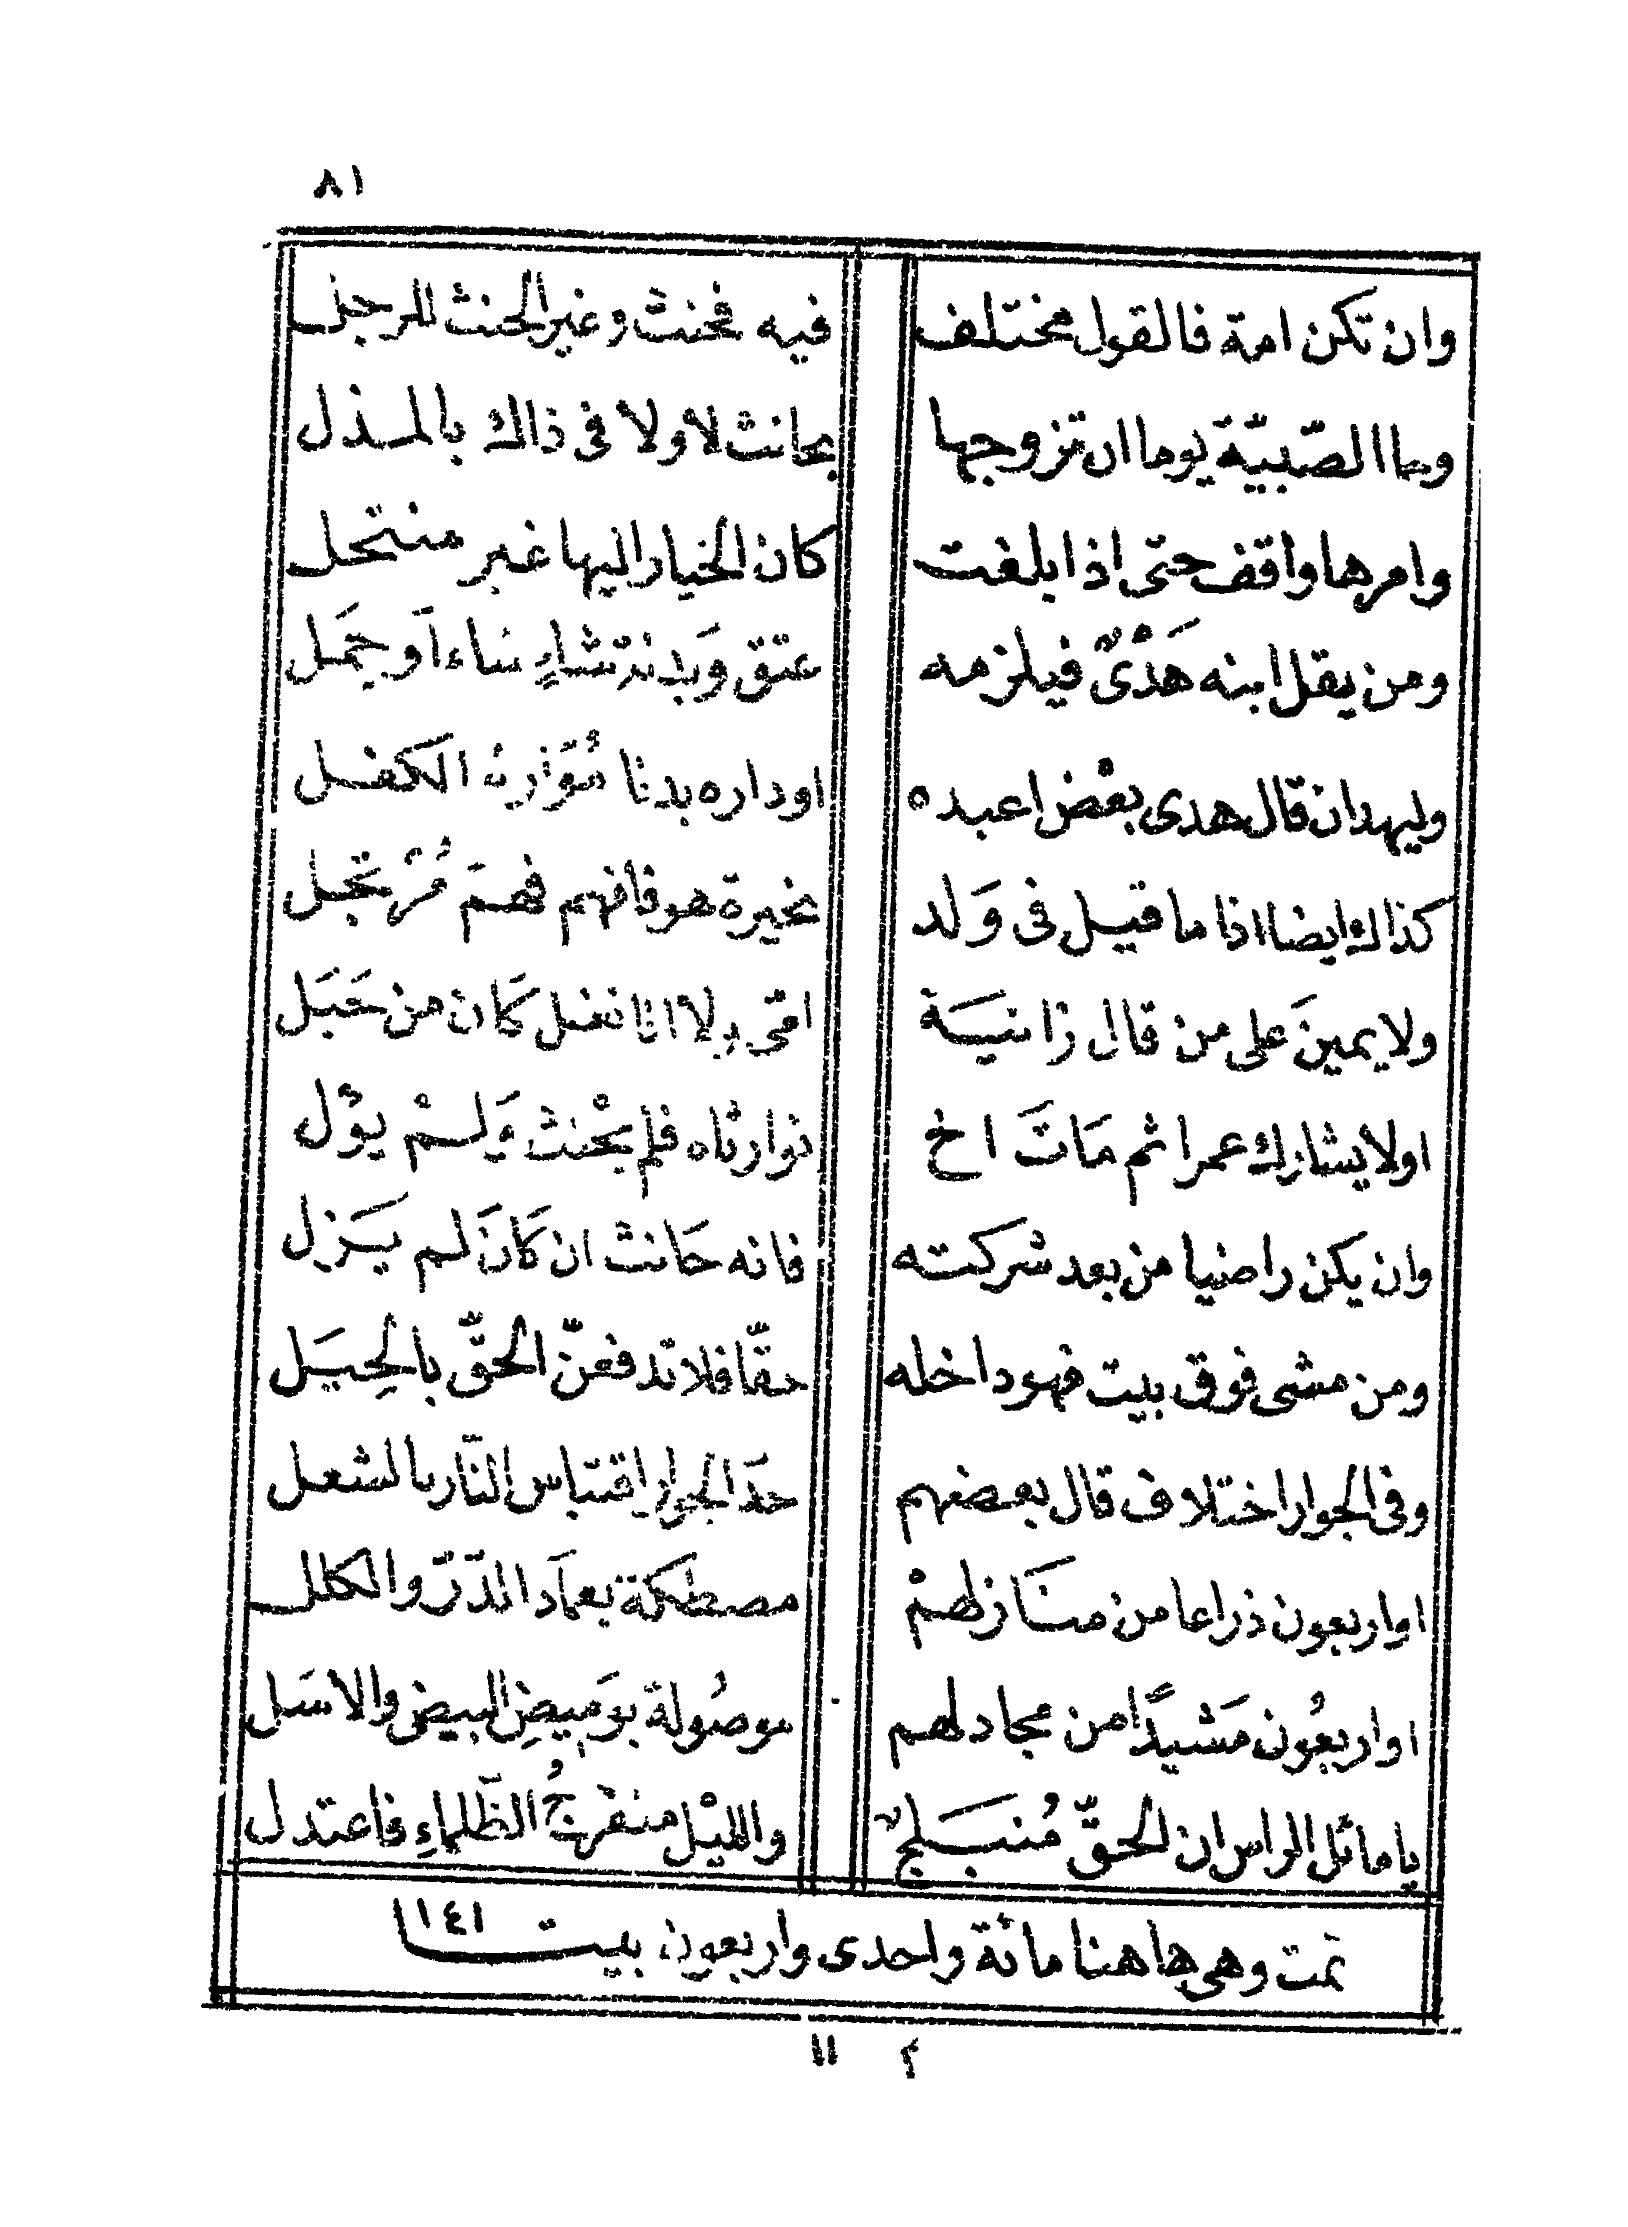 ٨١
وان تكن امة فالقول مختلف فيه فحنث وغير الحنث للرجل
وما الصّبيّة يوما ان تزوجها بحانث لا ولا فى ذاك بالمذل
وامرها واقف حتى اذا بلغت كان الخيار اليها غير منتحل
ومن يقل ابنه هَدْىٌ فيلزمه عتق وَبدنة شاءٍ نساء آو جمَل
وليهد ان قال هدى بعْض اعبده اوداره بدنا مُؤزرة الكفل
كذاك ايضا اذا ما قيل فى وَلد نحيرة هو فافهم فهمَ مُرْتجل
ولا يمينَ على من قال زانيَة امى بلا انا نغل كَان من حَبَل
اولا يشارك عمرا ثم مَاتَ اخ نوارثاه فلم يحْنث وَلمْ يؤل
وان يكن راضيا من بعد شركته فانه حَانث ان كَانَ لم يَزل
ومن مشى فوق بيت فهو داخله حقّا فلا تدفعنّ الحقّ بالحِيَل
وفى الجوار اختلاف قال بعضهم حدّ الجوار اقتباس النّار بالشعل
او اربعون ذراعا من منَازلهمْ مصطكة بعمَاد الدّرّ والكلل
او اربعُون مَشيدًا من مجادلهم موصُولة بوَميضِ البيض والاسَل
يا مائل الراس ان الحقّ مُنبَلج والليْل منفرجُ الظّلماءِ فاعتدل
تمت وهى هاهنا مائة واحدى واربعون بيت ١٤١
م ١١